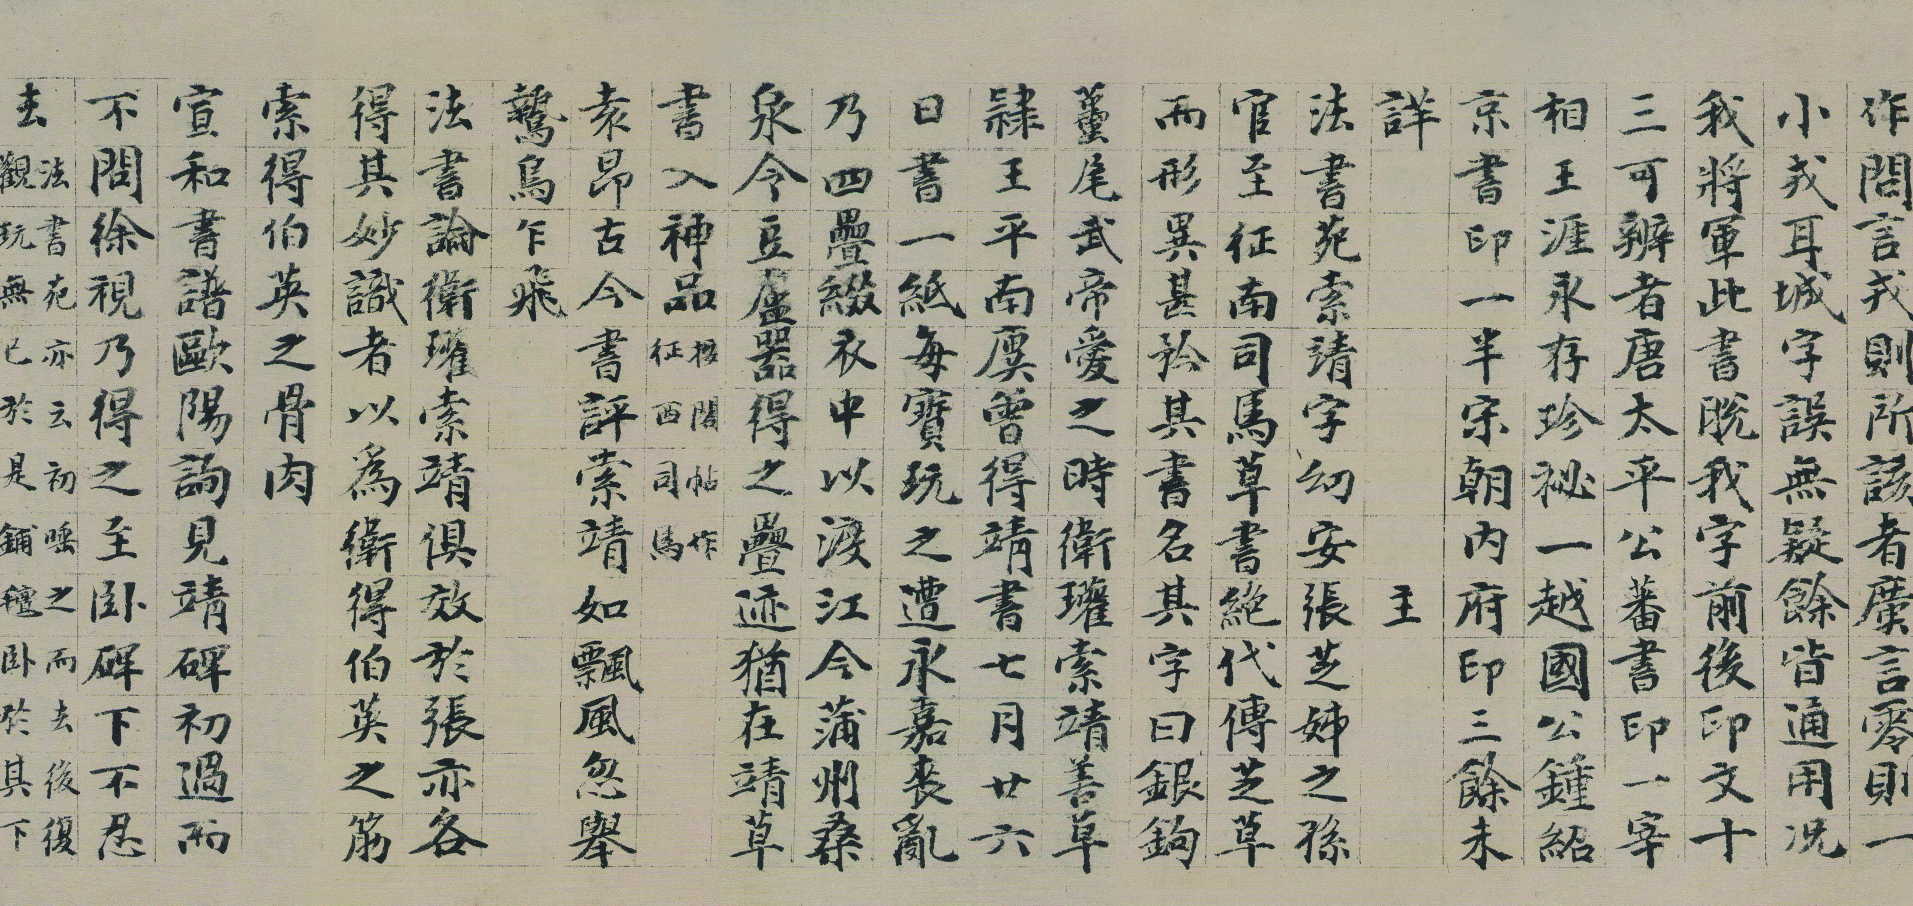 作閤言戎則所該者廣言零則一
小戎耳城字誤無疑餘皆通用况
我將軍此書脫我字前後印文十
三可辨者唐太平公蕃書印一宰
相王涯永存珍祕一越國公鍾紹
京書印一半宋朝内府印三餘未
詳 王
法書苑索靖字幼安張芝姊之孫
官至征南司馬草書絶代傳芝草
而形異甚矜其書名其字曰銀鉤
蠆尾武帝愛之時衛瓘索靖善草
隸王平南廙曾得靖書七月廿六
日書一紙每寶玩之遭永嘉喪亂
乃四疊綴衣中以渡江今蒲州桑
泉令豆盧器得之疊迹猶在靖草
書入神品 按閣帖作
征西司馬
袁昂古今書評索靖如飄風忽舉
鷙鳥乍飛
法書論衛瓘索靖俱效於張亦各
得其妙識者以爲衛得伯英之筋
索得伯英之骨肉
宣和書譜歐陽詢見靖碑初過而
不問徐視乃得之至卧碑下不忍
去 法書苑亦云初唾之而去後復
觀玩無已於是鋪氊卧於其下